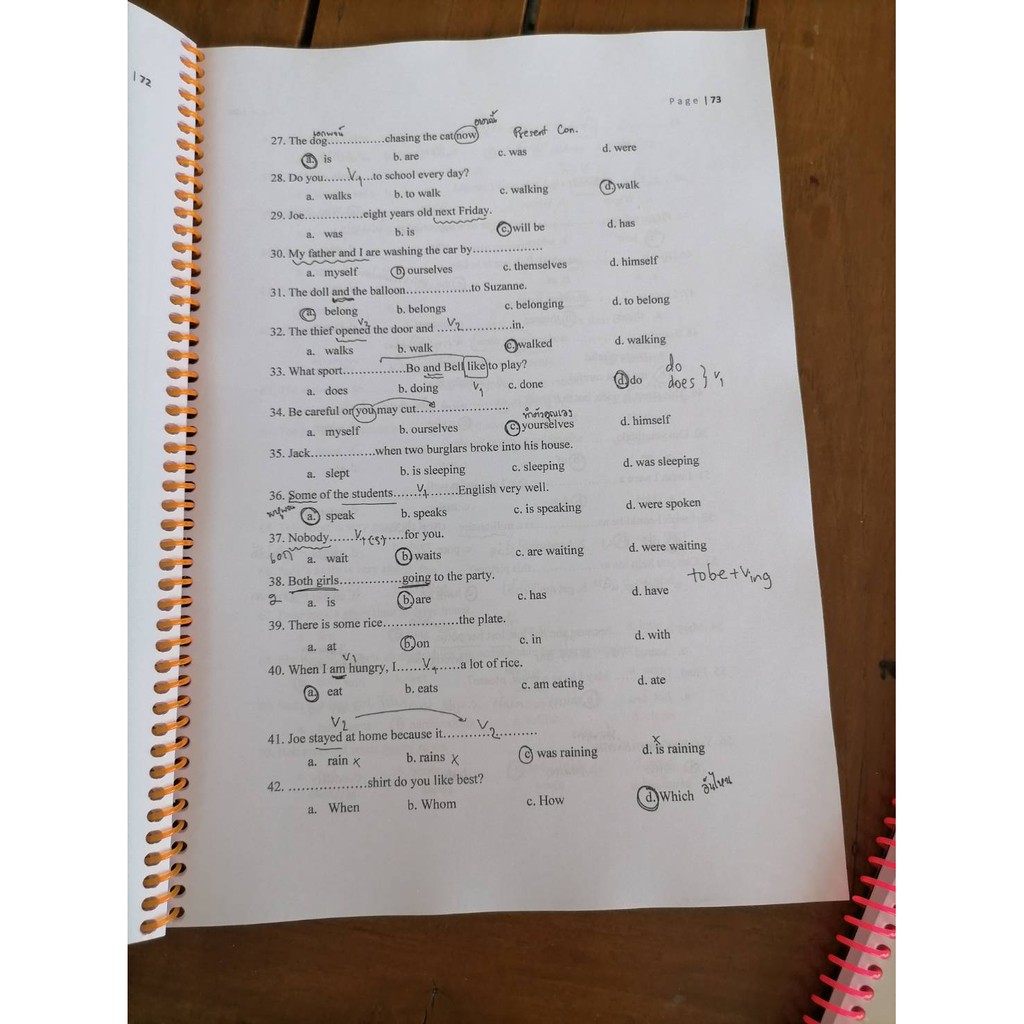 | 72
Page | 73
เอกพจน์ ตอนนี้
27. The dog...............chasing the cat now Present Con.
a. is b. are c. was d. were
28. Do you......V1...to school every day?
a. walks b. to walk c. walking d. walk
29. Joe...............eight years old next Friday.
a. was b. is c. will be d. has
30. My father and I are washing the car by..................
a. myself b. ourselves c. themselves d. himself
31. The doll and the balloon.................to Suzanne.
a. belong b. belongs c. belonging d. to belong
V2
32. The thief opened the door and ...V2.............in.
a. walks b. walk c. walked d. walking
33. What sport.................Bo and Bell like to play?
a. does b. doing V1 c. done d. do
do
does } V1
34. Be careful or you may cut........................
ทำตัวคุณเอง
a. myself b. ourselves c. yourselves d. himself
35. Jack.................when two burglars broke into his house.
a. slept b. is sleeping c. sleeping d. was sleeping
36. Some of the students......V1........English very well.
a. speak b. speaks c. is speaking d. were spoken
37. Nobody......V1+es+....for you.
a. wait b. waits c. are waiting d. were waiting
38. Both girls................going to the party. tobe+Ving
2 a. is b. are c. has d. have
39. There is some rice...................the plate.
a. at b. on c. in d. with
V1
40. When I am hungry, I......V1......a lot of rice.
a. eat b. eats c. am eating d. ate
V2
41. Joe stayed at home because it............V2..........
x
a. rain x b. rains x c was raining d. is raining
42. ...................shirt do you like best?
a. When b. Whom c. How d. Which อันไหน